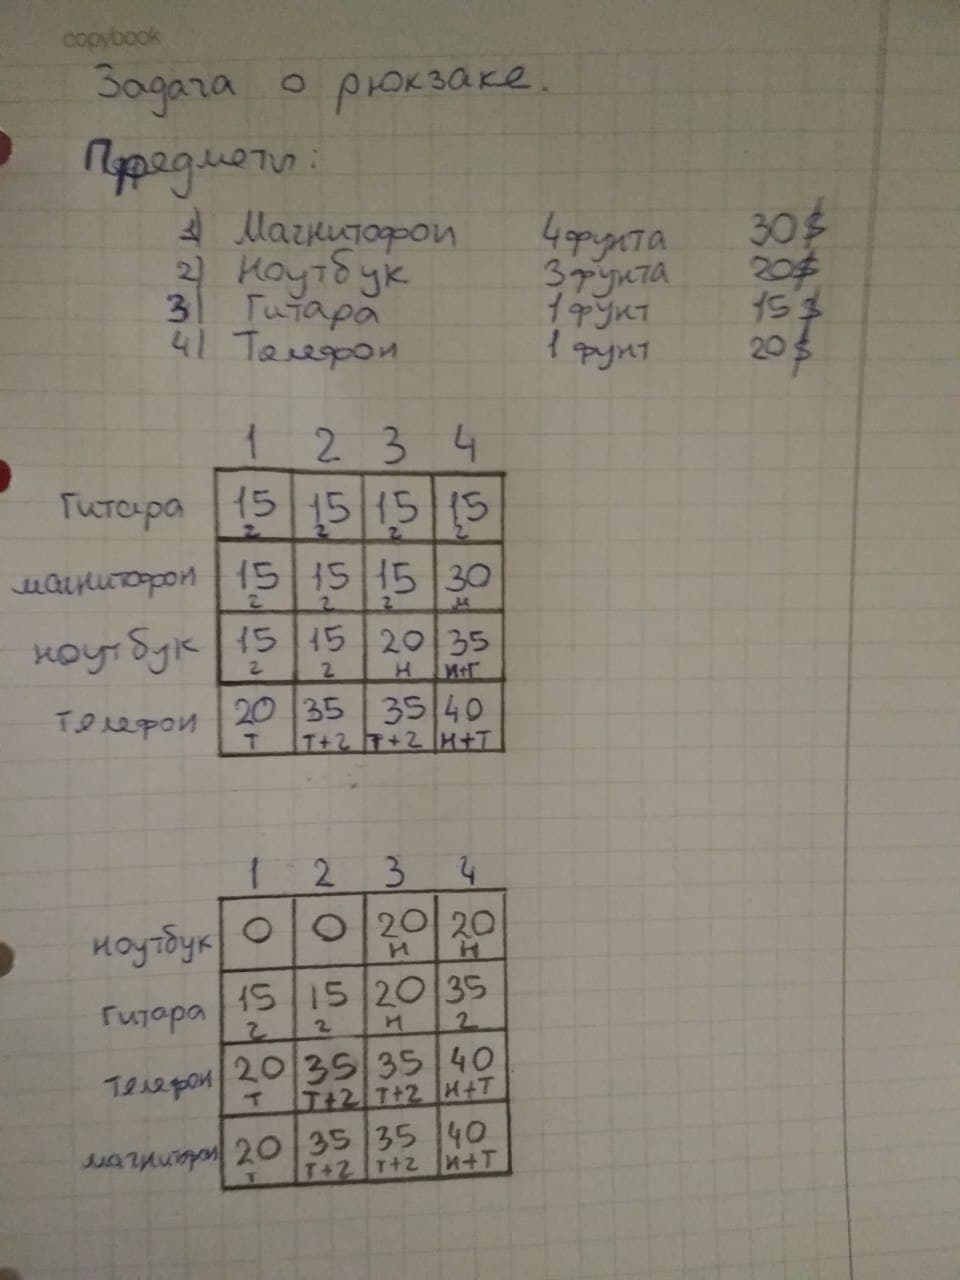 copybook
Задача о рюкзаке.
Предметы:
1) Магнитофон 4 фунта 30$
2) Ноутбук 3 фунта 20$
3) Гитара 1 фунт 15$
4) Телефон 1 фунт 20$
1 2 3 4
Гитара 15 15 15 15
г г г г
магнитофон 15 15 15 30
г г г м
ноутбук 15 15 20 35
г г н н+г
телефон 20 35 35 40
т т+г т+г н+т
1 2 3 4
ноутбук 0 0 20 20
н н
гитара 15 15 20 35
г г н г
телефон 20 35 35 40
т т+г т+г н+т
магнитофон 20 35 35 40
т т+г т+г н+т